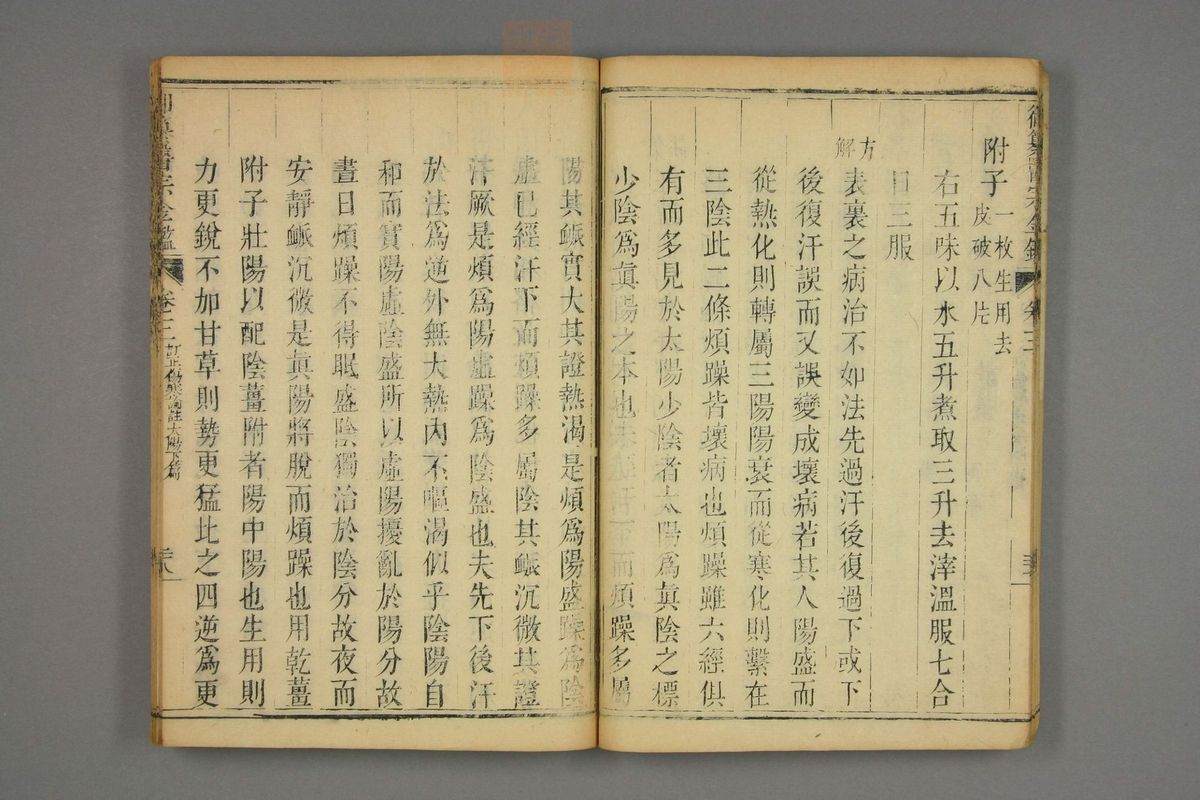 御纂醫宗金鑑 卷三
附子一枚生用去
皮破八片
右五味以水五升煮取三升去滓溫服七合
日三服
方解
表裏之病治不如法先過汗後復過下或下
後復汗誤而又誤變成壞病若其人陽盛而
從熱化則轉屬三陽陽衰而從寒化則繫在
三陰此二條煩躁皆壞病也煩躁雖六經俱
有而多見於太陽少陰者太陽爲眞陰之標
少陰爲眞陽之本也未經汗下而煩躁多屬
陽其䘑實大其證熱渴是煩爲陽盛躁爲陰
虛已經汗下而煩躁多屬陰其䘑沉微其證
汗厥是煩爲陽虛躁爲陰盛也夫先下後汗
於法爲逆外無大熱內不嘔渴似乎陰陽自
和而實陽虛陰盛所以虛陽擾亂於陽分故
晝日煩躁不得眠盛陰獨治於陰分故夜而
安靜䘑沉微是眞陽將脫而煩躁也用乾薑
附子壯陽以配陰薑附者陽中陽也生用則
力更銳不加甘草則勢更猛比之四逆爲更
御纂醫宗金鑑 卷三 訂正傷寒論註太陽下篇